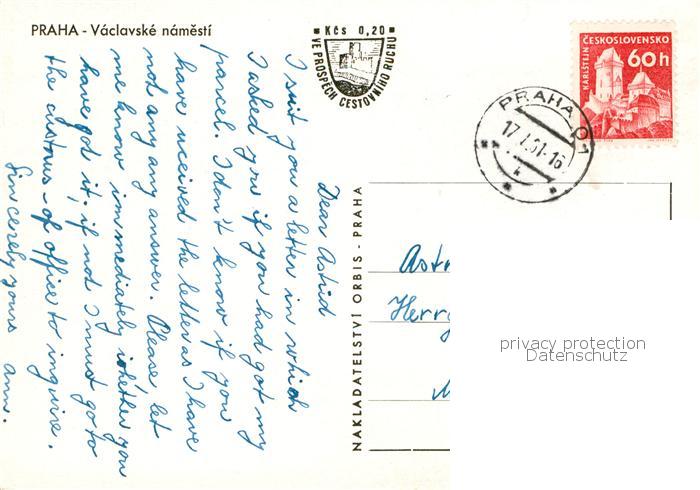 PRAHA - Václavské náměstí
Kčs 0,20
VE PROSPĚCH CESTOVNÍHO RUCHU
KARLŠTEJN
ČESKOSLOVENSKO
60h
PRAHA 01
Dear Astrid
I sent you a letter in which
I asked you if you had got my
parcel. I don't know if you
have received the letter as I have
not any any answer. Please, let
me know immediately whether you
have got it, if not I must go to
the customs - of office to inquire.
Sincerely yours Ann.
NAKLADATELSTVÍ ORBIS - PRAHA
privacy protection
Datenschutz